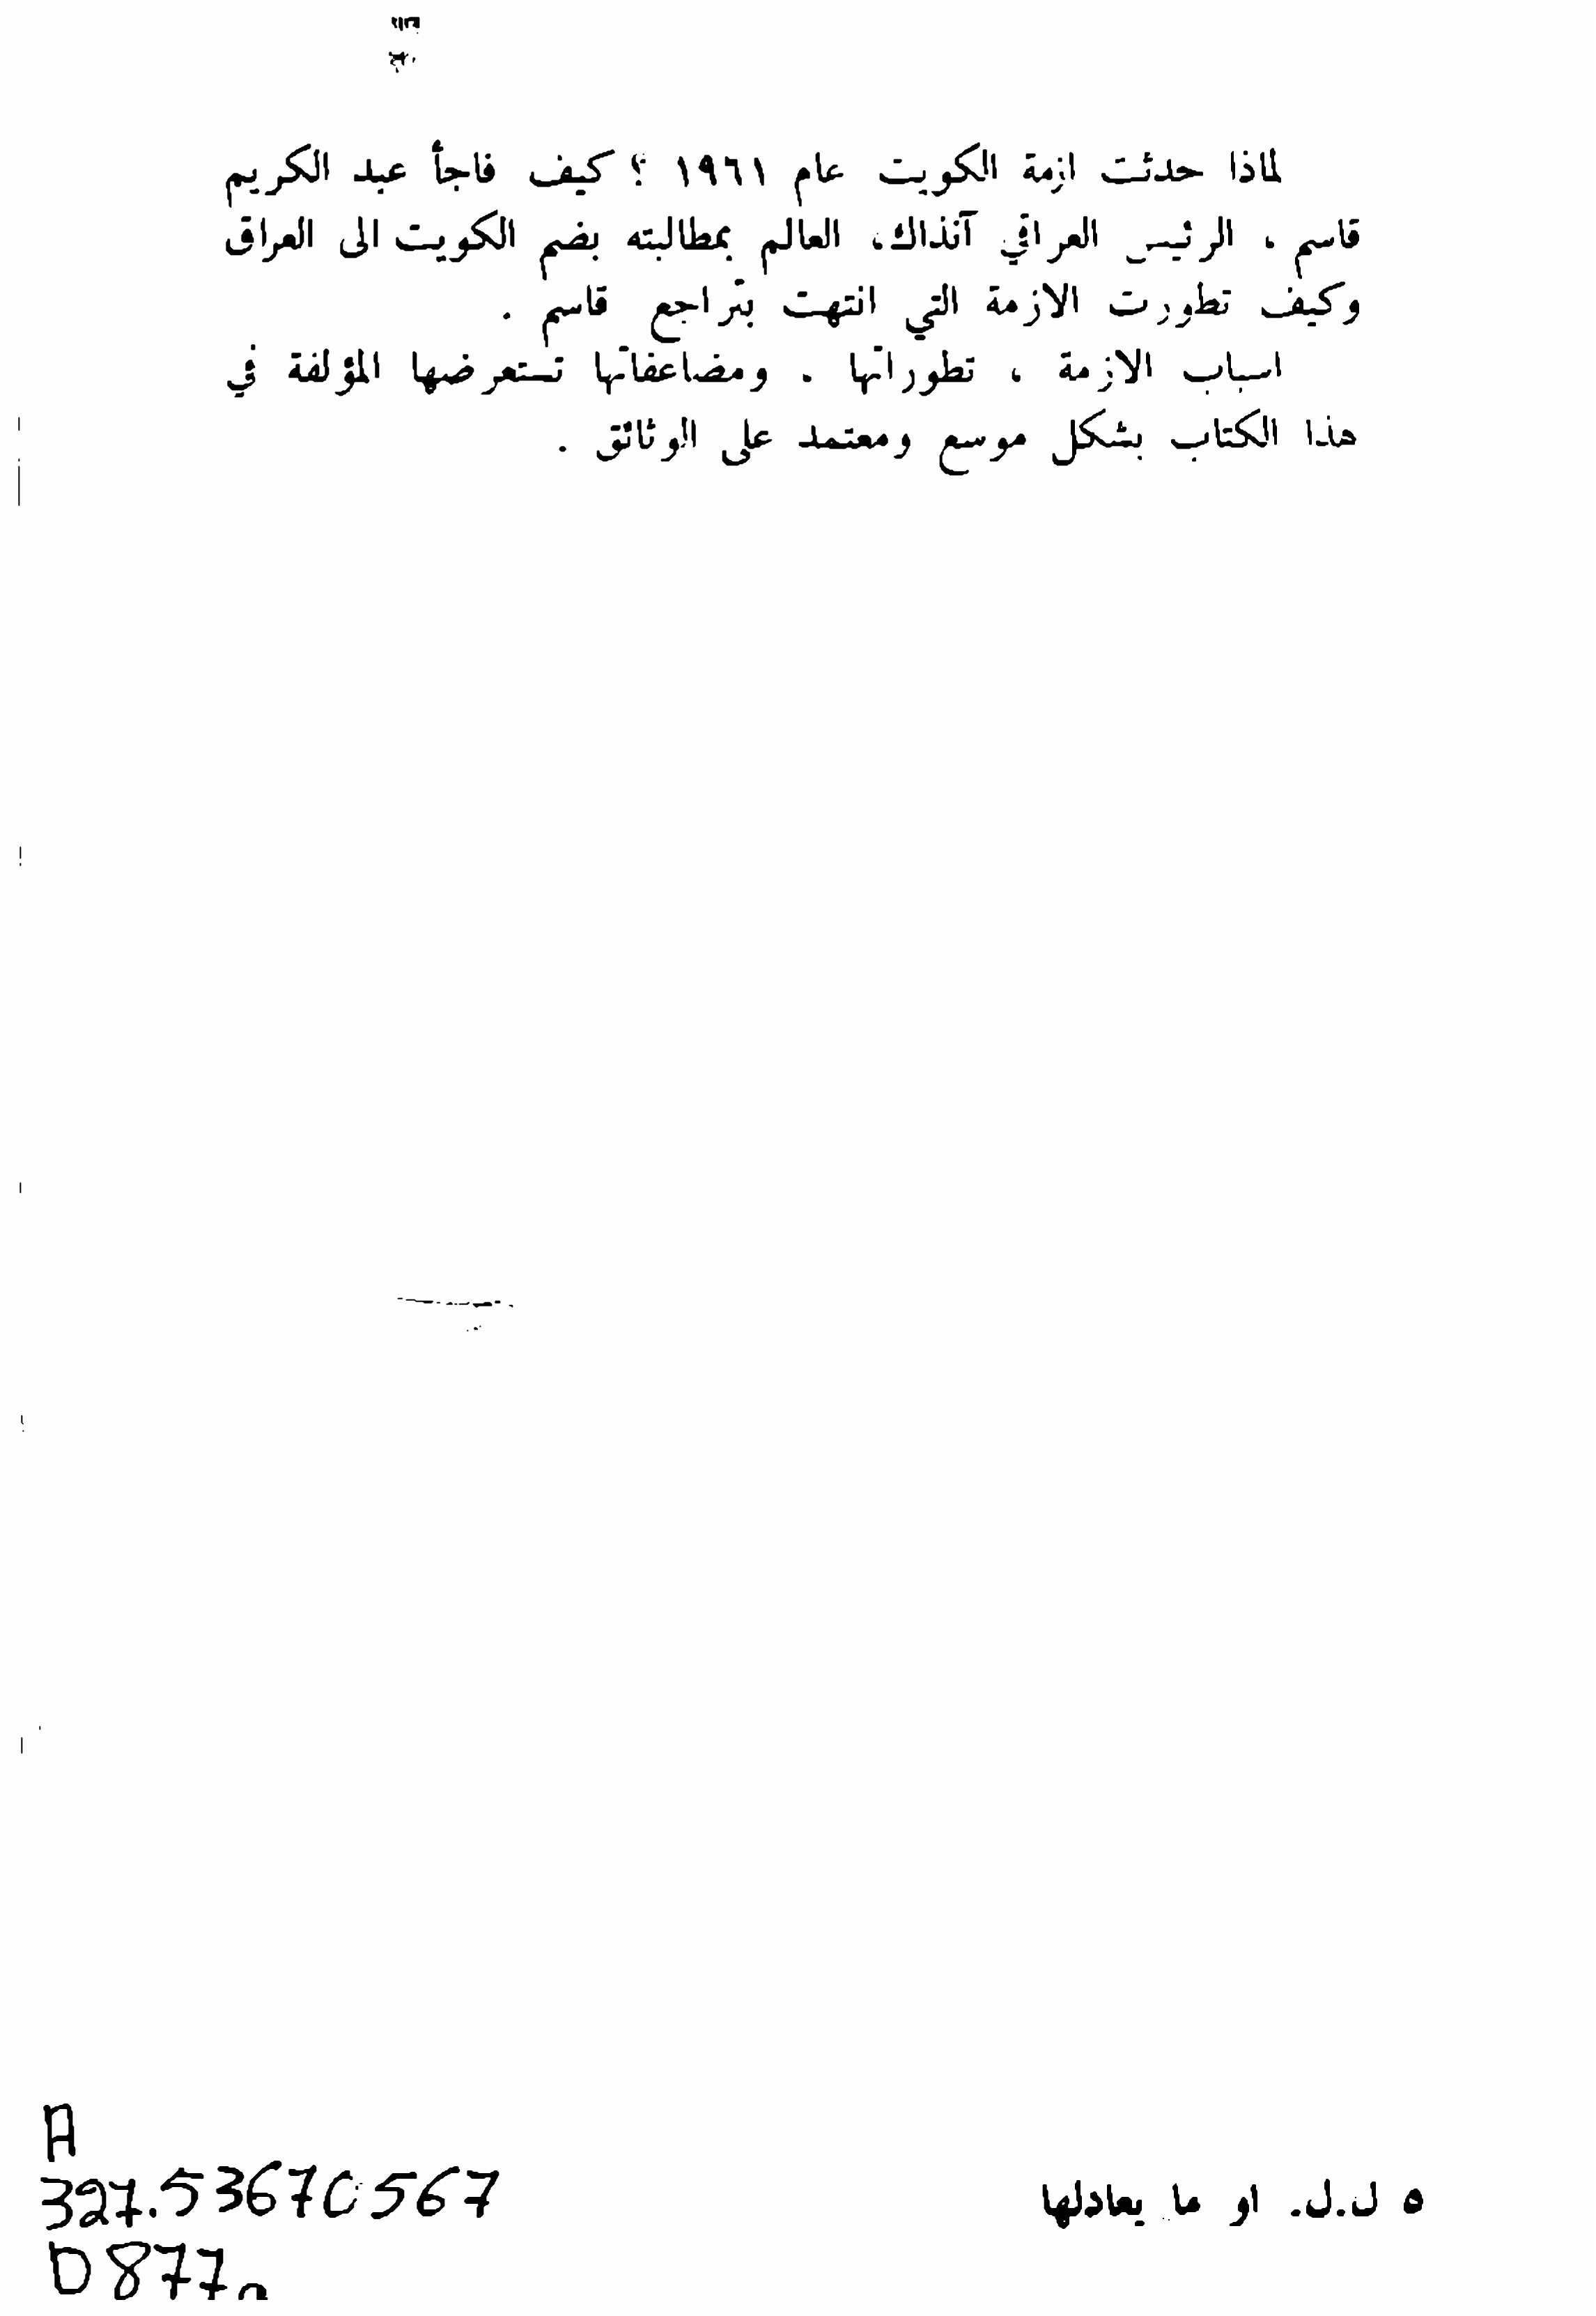 لماذا حدثت ازمة الكويت عام ١٩٦١ ؟ كيف فاجأ عبد الكريم
قاسم ، الرئيس العراقي آنذاك، العالم بمطالبته بضم الكويت الى العراق
وكيف تطورت الازمة التي انتهت بتراجع قاسم .
اسباب الازمة ، تطوراتها . ومضاعفاتها تستعرضها المؤلفة في
هذا الكتاب بشكل موسع ومعتمد على الوثائق .
٥ ل.ل. او ما يعادلها
A
327.53670567
D877